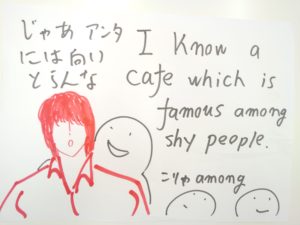 じゃあ アンタ
には 向い
とらんな
I know a
cafe which is
famous among
shy people.
こりゃ among